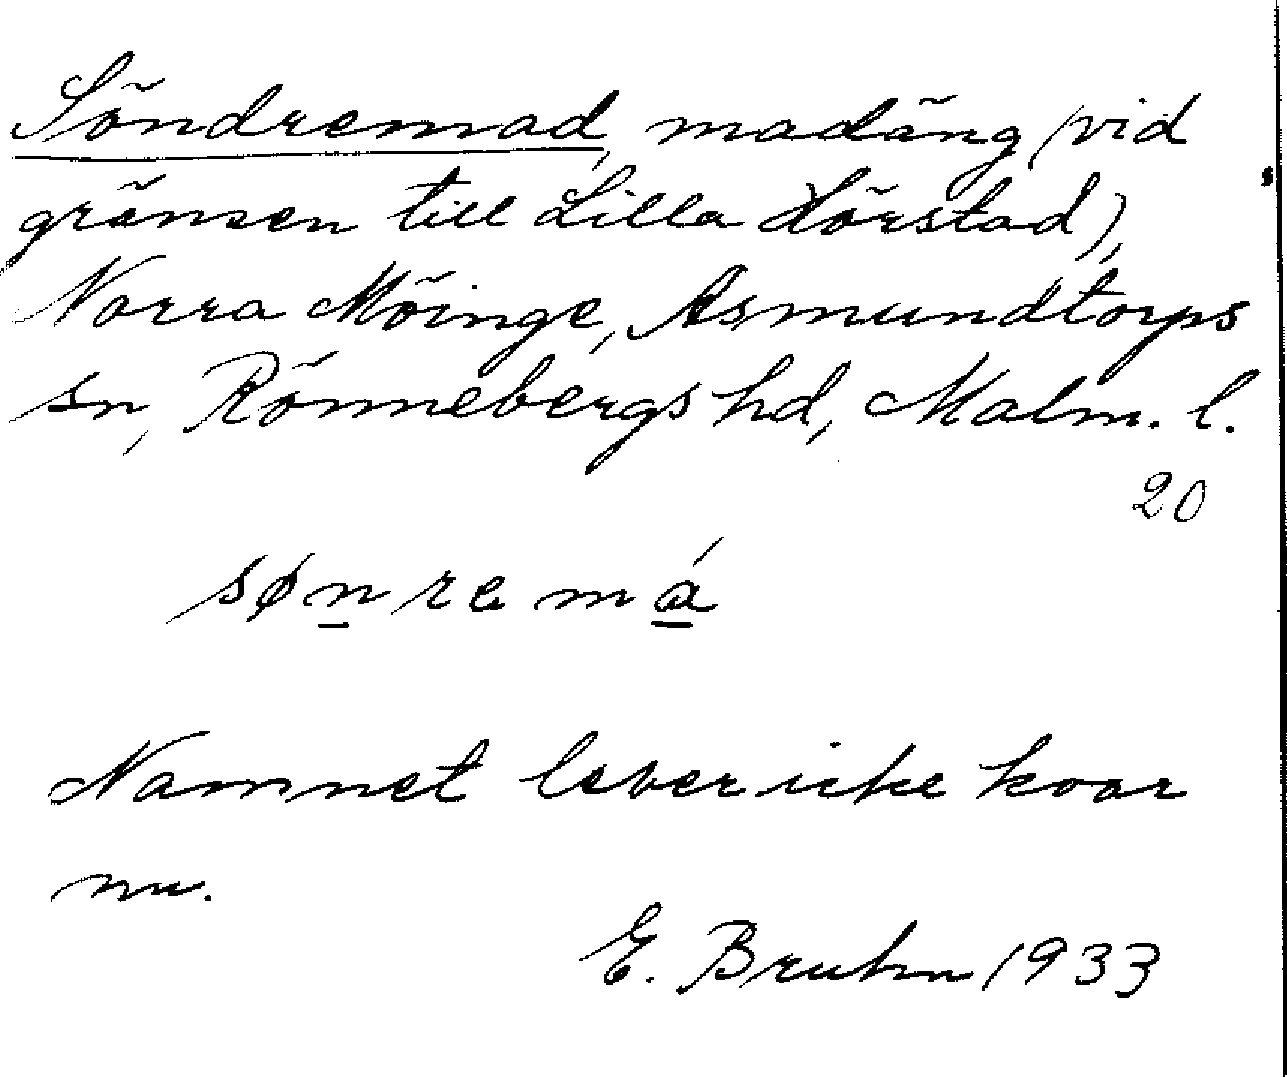 Söndremad, madäng (vid
gränsen till Lilla Hörstad),
Norra Möinge, Asmundtorps
sn, Rönnebergs hd, Malm. l.
20
sønremá
Namnet lever icke kvar
nu.
E. Bruhn 1933